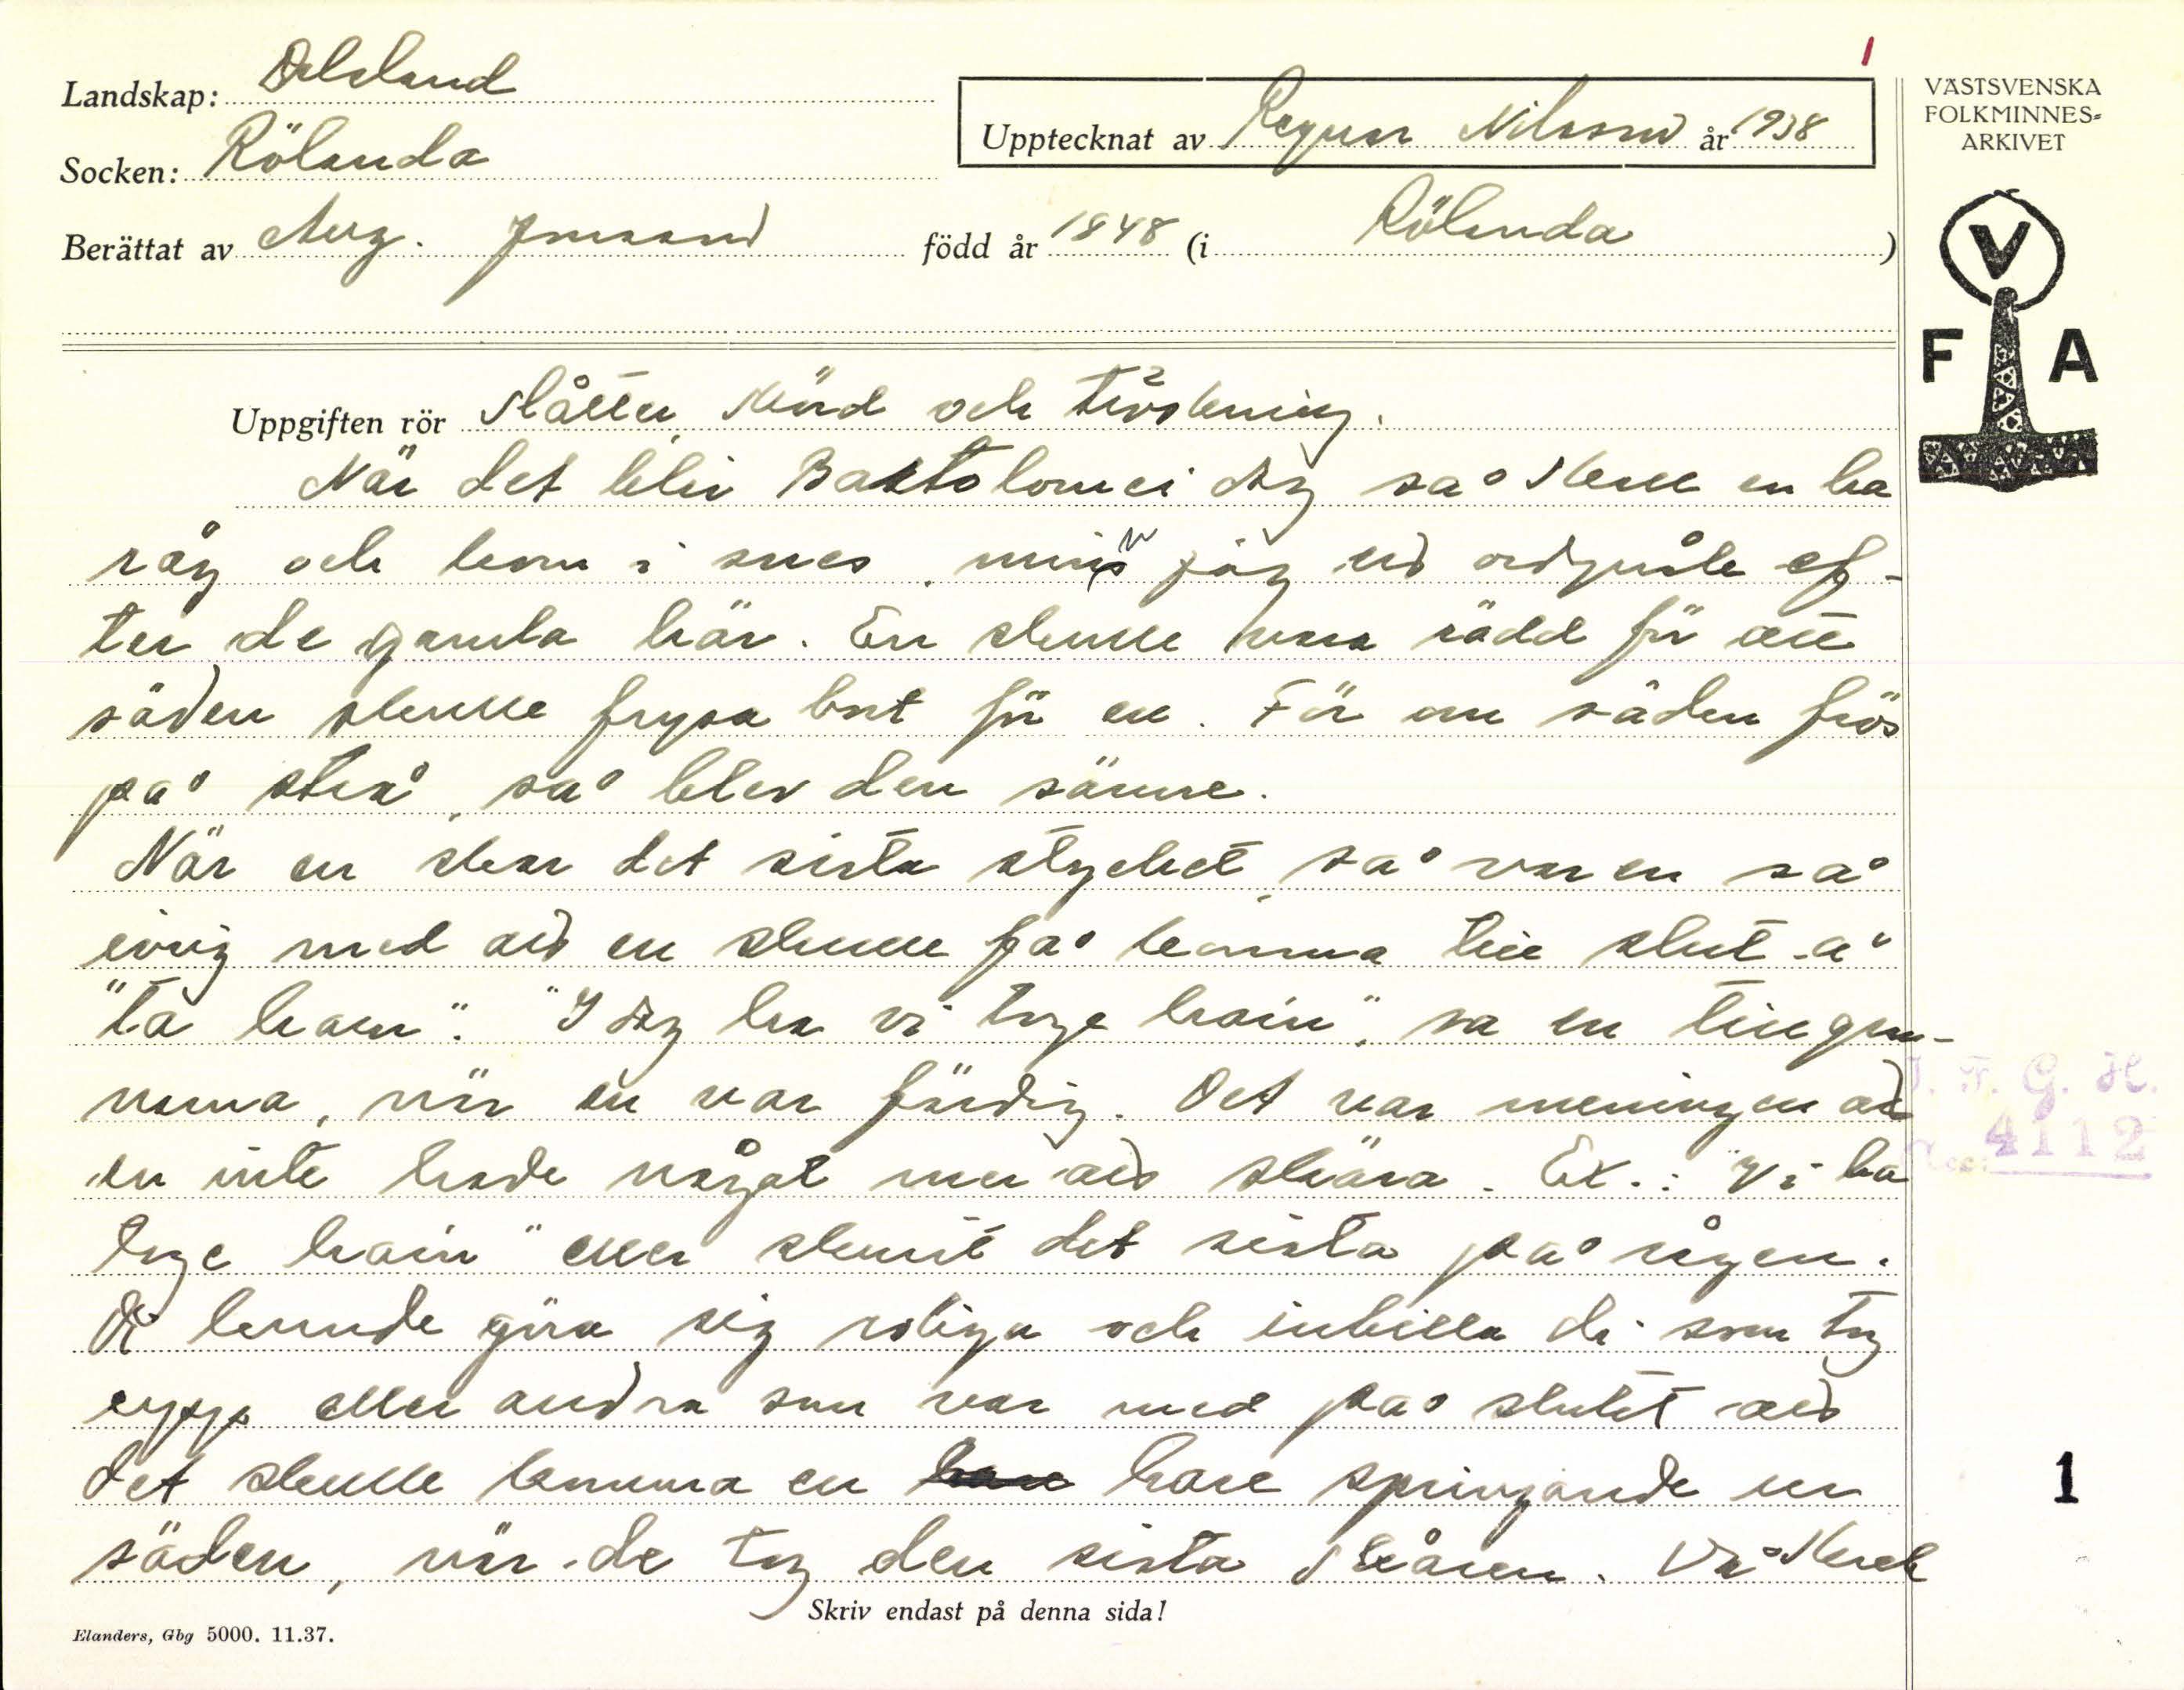 1
Landskap: Dalsland
Socken: Rölanda
Upptecknat av Ragnar Nilsson år 1938
Berättat av Aug. Jonsson född år 1848 (i Rölanda)
VÄSTSVENSKA
FOLKMINNES-
ARKIVET
V
F A
Uppgiften rör Slåtter, skörd och tröskning.
När det blir Bartolomei dag så skull en ha
råg och korn i snes, minns jag ett ordspråk ef-
ter de gamla här. En skulle vara rädd för att
säden skulle frysa bort för en. För om säden frös
på strå, så blev den sämre.
När en skar det sista stycket, så var en så
ivrig med att en skulle få komma till slut å
"ta haen". "I dag ha vi tage hain", sa en till gra-
narna, när en var färdig. Det var meningen att
en inte hade något mer att skära. Ex.: "Vi ha
tage hain" eller skurit det sista på rågen.
Di kunde göra sig roliga och inbilla di som tog
upp eller andra som var med på slutet att
det skulle komma en hare springande ur
säden, när de tog den sista skåren. Då skull
I. F. G. H.
Acc: 4112
1
Skriv endast på denna sida!
Elanders, Gbg 5000. 11.37.